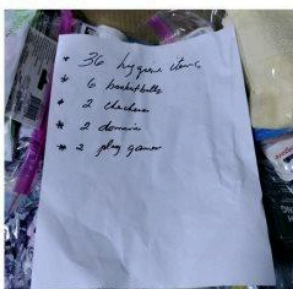 * 36 hygiene items
* 6 basketballs
* 2 checkers
* 2 domains
* 2 play games